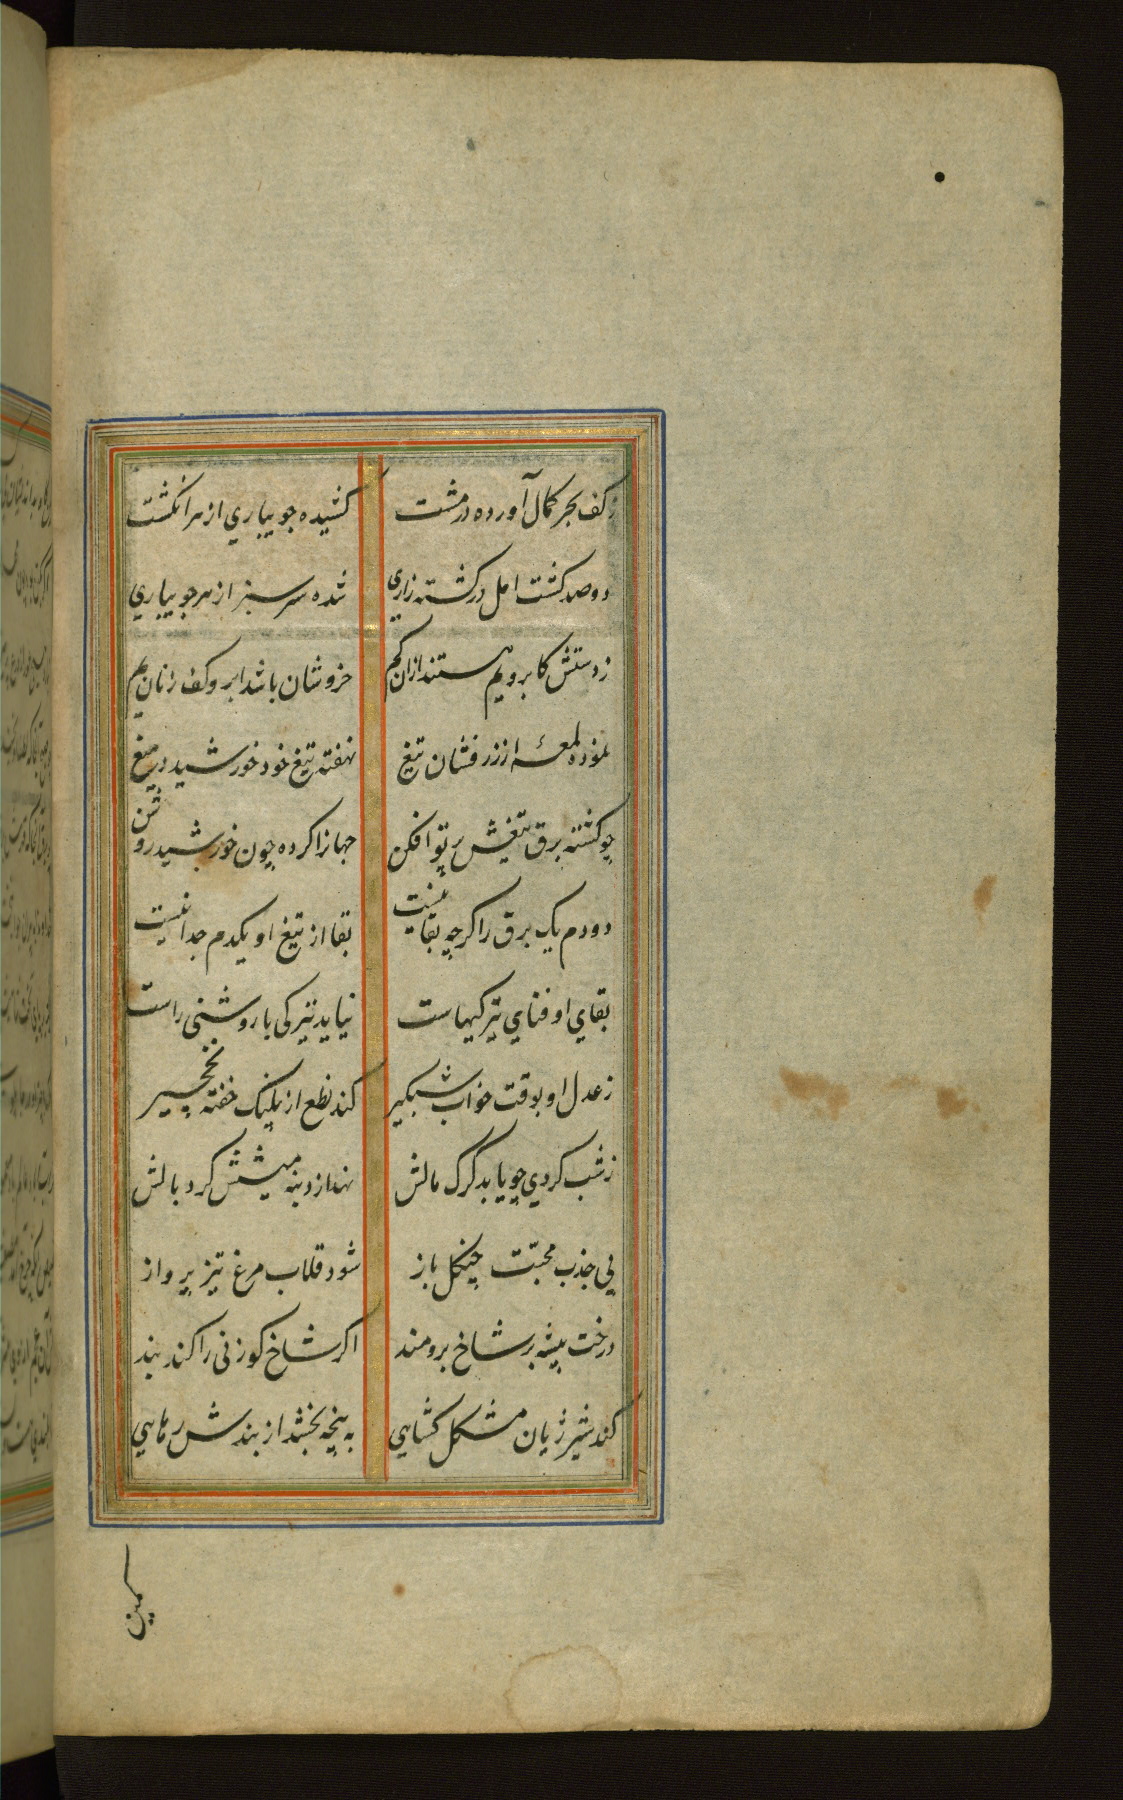 ز کف بحر کمال آورده در مشت کشیده جویباري از هر انکشت
دو صد کشت امل در کشته زاري شده سرسبز از هر جویباري
ز دستش کابر و یم هستند ازان کم خروشان باشد ابر و کف زنان یم
نموده لمعهٔ از زرفشان تیغ نهفته تیغ خود خورشید در میغ
چو کشته برق تیغش پرتو افکن جهانرا کرده چون خورشید روشن
دو دم یک برق را کرچه بقا نیست بقا از تیغ او یکدم جدا نیست
بقاي او فناي تیرکیهاست نیاید تیرکی با روشنی راست
ز عدل او بوقت خواب شبکیر کند نطع از پلنک خفته نخچیر
ز شب کردي چو یابد کرک مالش نهد از دنبه میشش کرد بالش
پی جذب محبّت چنکل باز شود قلاب مرغ تیز پرواز
درخت بیشه بر شاخ برومند اکر شاخ کوزنی را کند بند
کند شیر ژیان مشکل کشایي به پنجه بخشد از بندش رهایي
کمین